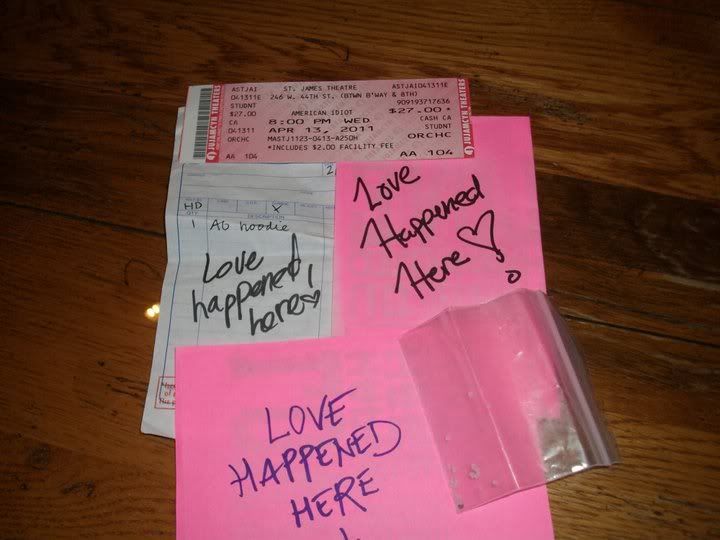 JUJAMCYN THEATERS
ASTJAI ST. JAMES THEATRE ASTJAI041311E
041311E 246 W. 44TH ST. (BTWN B'WAY & 8TH)
STUDNT 909193717636
$27.00 AMERICAN IDIOT $27.00 *
CA 8:00 PM WED CASH CA
041311 APR 13, 2011 STUDNT
ORCHC MASTJ1123-0413-A250H ORCHC
*INCLUDES $2.00 FACILITY FEE
AA 104 AA 104
JUJAMCYN THEATERS
2
HD X
QTY DESCRIPTION
1 AG hoodie
Love
happened
here
Love
Happened
Here
LOVE
HAPPENED
HERE